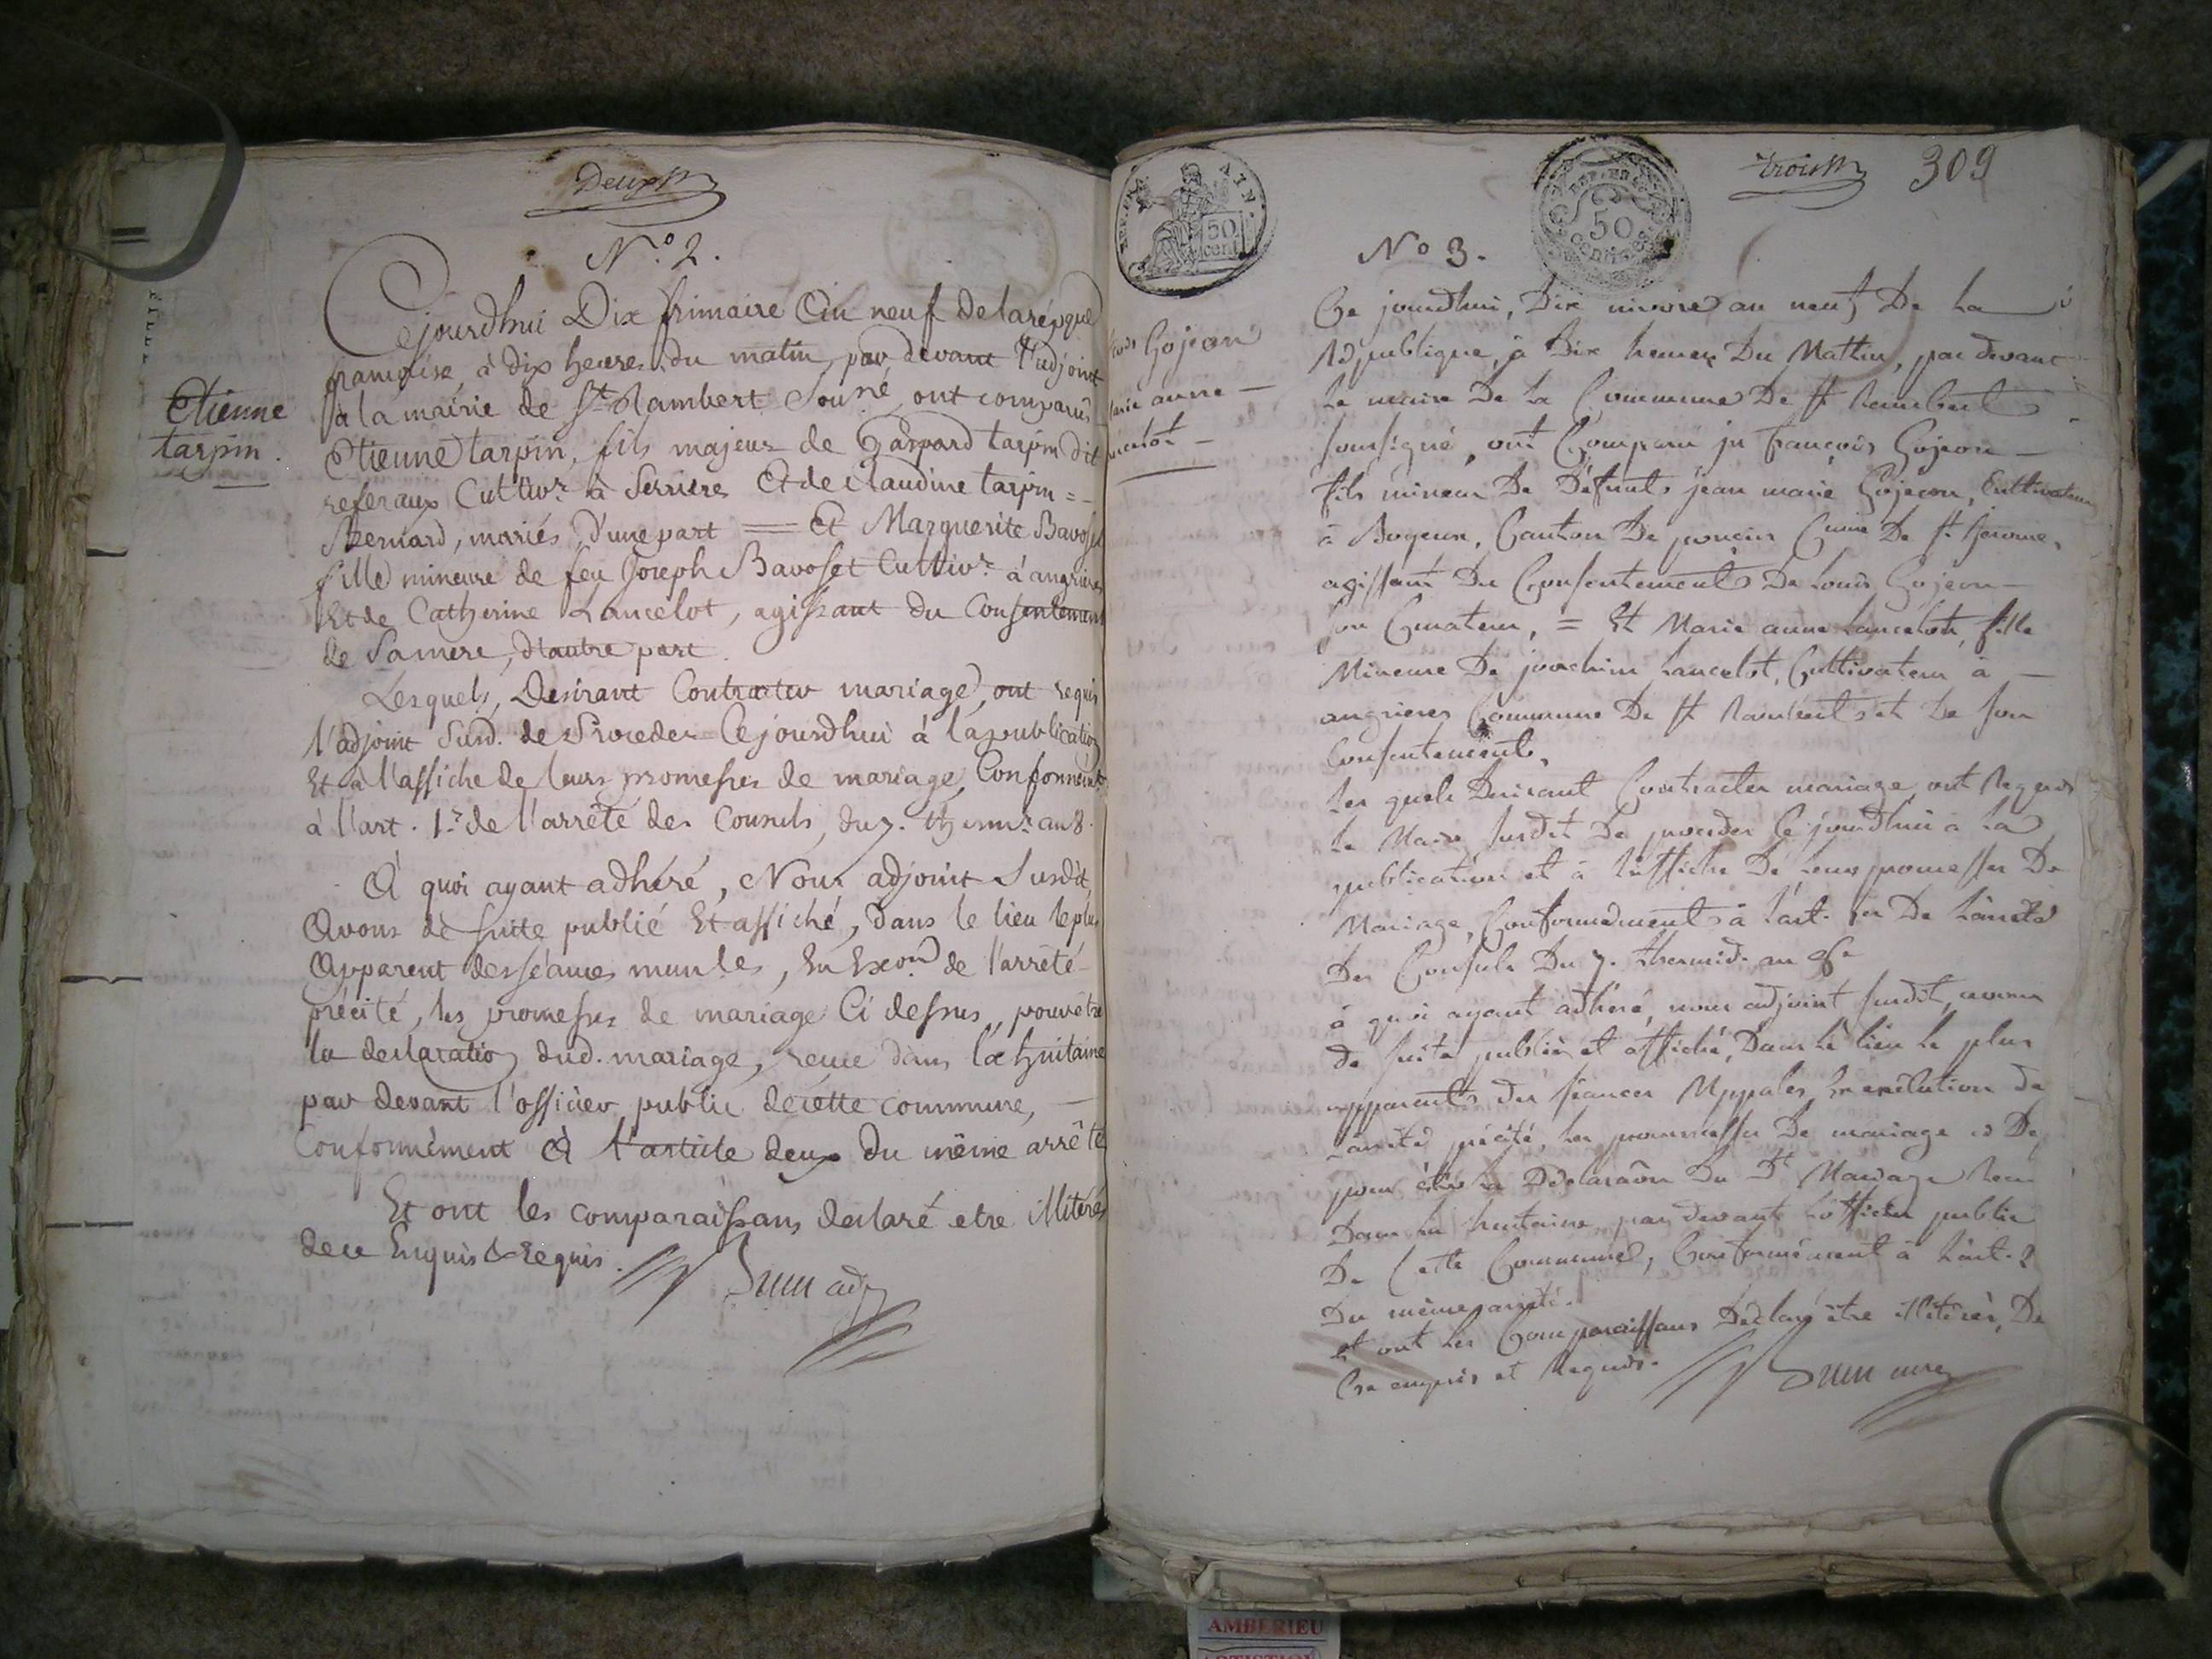 Deux
N.o 2.
Cejourdhui Dix frimaire an neuf de la répque
francaise, à dix heures du matin, par devant l'adjoint
à la mairie de St Rambert Sousné, ont comparus
Etienne tarpin, fils majeur de Gaspard tarpin dit
Cultivr. à Serrieres Et de Claudine tarpin =
Bernard, mariés, d'une part = Et Marguerite Bavoset
fille mineure de feu Joseph Bavoset Cultivr. à angrieres
Et de Catherine Lancelot, agissant du Consentement
de Samere, d'autre part.
Etienne
tarpin.
Lesquels, Desirant Contracter mariage, ont requis
l'adjoint Susd. de Proceder Cejourdhui à la publication
Et à l'affiche de leurs promesses de mariage, Conformémt
à l'art. 1.er de l'arrêté des Consuls, du 7. thermr. an 8.
A quoi ayant adhéré, Nous adjoint Susdit,
Avons de suite publié Et affiché, dans le lieu le plus
Apparent des séances munles, En Exon de l'arrêté
précité, les promesses de mariage Ci dessus, pour être
la declaration dud. mariage, recue dans la huitaine
par devant l'officier public de cette commune, —
Conformément A l'article deux du même arrêté
Et ont les comparaissans declaré etre illitérés
de ce Enquis & requis.
adj
AIN.
50
cent
50
Trois
309
N.o 3.
Gojeon
Marie anne —
Ce jourdhui, Dix nivose an neuf De La
République, à Dix heures Du Mattin, par devant
Le maire De La Commune De St Rambert
soussigné, ont Comparu françois Gojeon —
fils mineur De Défunts jean marie Gojeon, Cultivateur
à Boyeux, Canton De poncin Cune De St. Jerome,
agissant Du Consentement De Louis Gojeon —
son Curateur, = Et Marie anne Lancelot, fille
Mineure De joachim Lancelot, Cultivateur à —
angrieres Commune De St Rambert et De son
Consentement,
Les quels Desirant Contracter mariage ont Requis
Le Maire susdit De proceder Ce jourdhui à La
publication et à L'affiche De Leurs promesses De
Mariage, Conformément à L'art. 1er De L'arrêté
Des Consuls Du 7. thermid. an 8e
à quoi ayant adhéré, nous adjoint susdit, avons
de suite publié et affiché, Dans Le lieu Le plus
apparent des séances Mppales, En exécution de
L'arrêté précité, Les promesses De mariage ci De
pour être La Déclaraôn Du Dt Mariage
Dans La huitaine, par devant L'officier public
De Cette Commune, Conformément à L'art. 2
Du même arrêté.
et ont Les Comparaissans Déclaré être illitérés, De
Ce enquis et Requis.
AMBERIEU